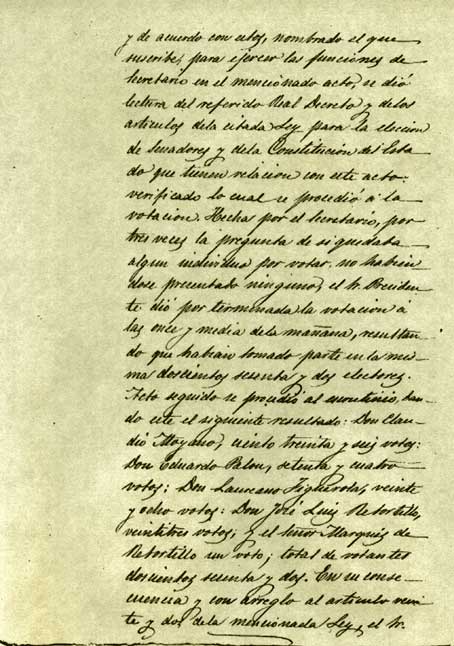 y de acuerdo con estos, nombrado el que
suscribe, para ejercer las funciones de
Secretario en el mencionado acto, se dió
lectura del referido Real Decreto y de los
articulos de la citada Ley para la eleccion
de Senadores y de la Constitucion del Esta-
do que tienen relacion con este acto:
verificado lo cual se procedió á la
votacion. Hecha por el Secretario, por
tres veces la pregunta de si quedaba
algun individuo por votar. no habien
dose presentado ninguno, el Sr. Presiden
te dió por terminada la votacion á
las once y media de la mañana, resultan-
do que habian tomado parte en la mis-
ma doscientos sesenta y dos electores.
Acto seguido se procedió al escrutinio, dan-
do este el siguiente resultado: Don Clau-
dio Moyano, ciento treinta y seis votos:
Don Eduardo Palou, setenta y cuatro
votos; Don Laureano Figuerola, veinte
y ocho votos: Don José Luis Retortillo,
veintitres votos; y el Señor Marqués de
Retortillo un voto; total de votantes
doscientos sesenta y dos. En su conse-
cuencia y con arreglo al articulo vein-
te y dos de la mencionada Ley, el Sr.